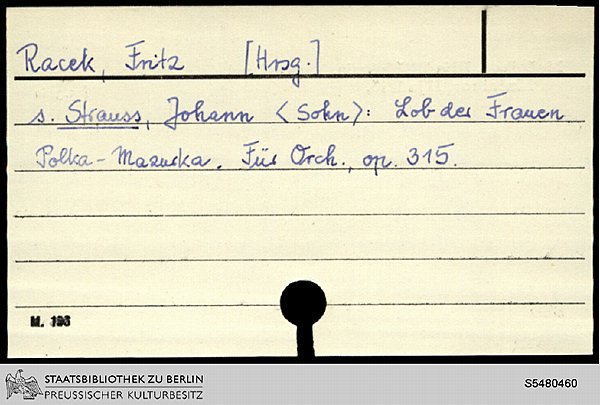 Racek, Fritz [Hrsg.]
s. Strauss, Johann <Sohn>: Lob der Frauen
Polka-Mazurka. Für Orch., op. 315.
M. 193
STAATSBIBLIOTHEK ZU BERLIN
PREUSSISCHER KULTURBESITZ
S5480460